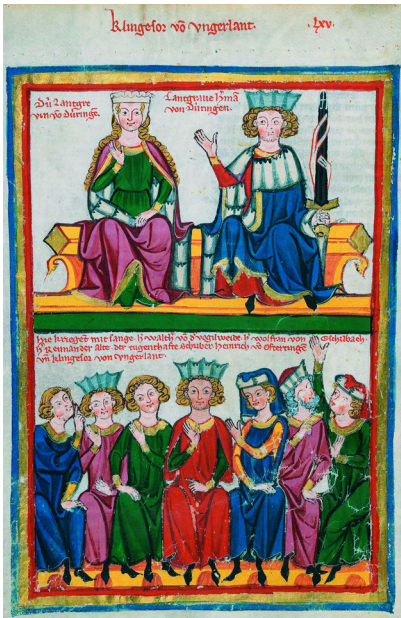 Klingesor võ vngerlant. ·lxv·
Dú Lantgre
vin võ Dúringe.
Lantgraue h'mã
von Dúringen.
Hie krieget mit sange. h' walth' võ d' vogilweide. h' wolfran von eschilbach.
h' Reinander alte. der tugenthafte schriber. heinrich võ ofteringen
vñ klingesor von vngerlant.